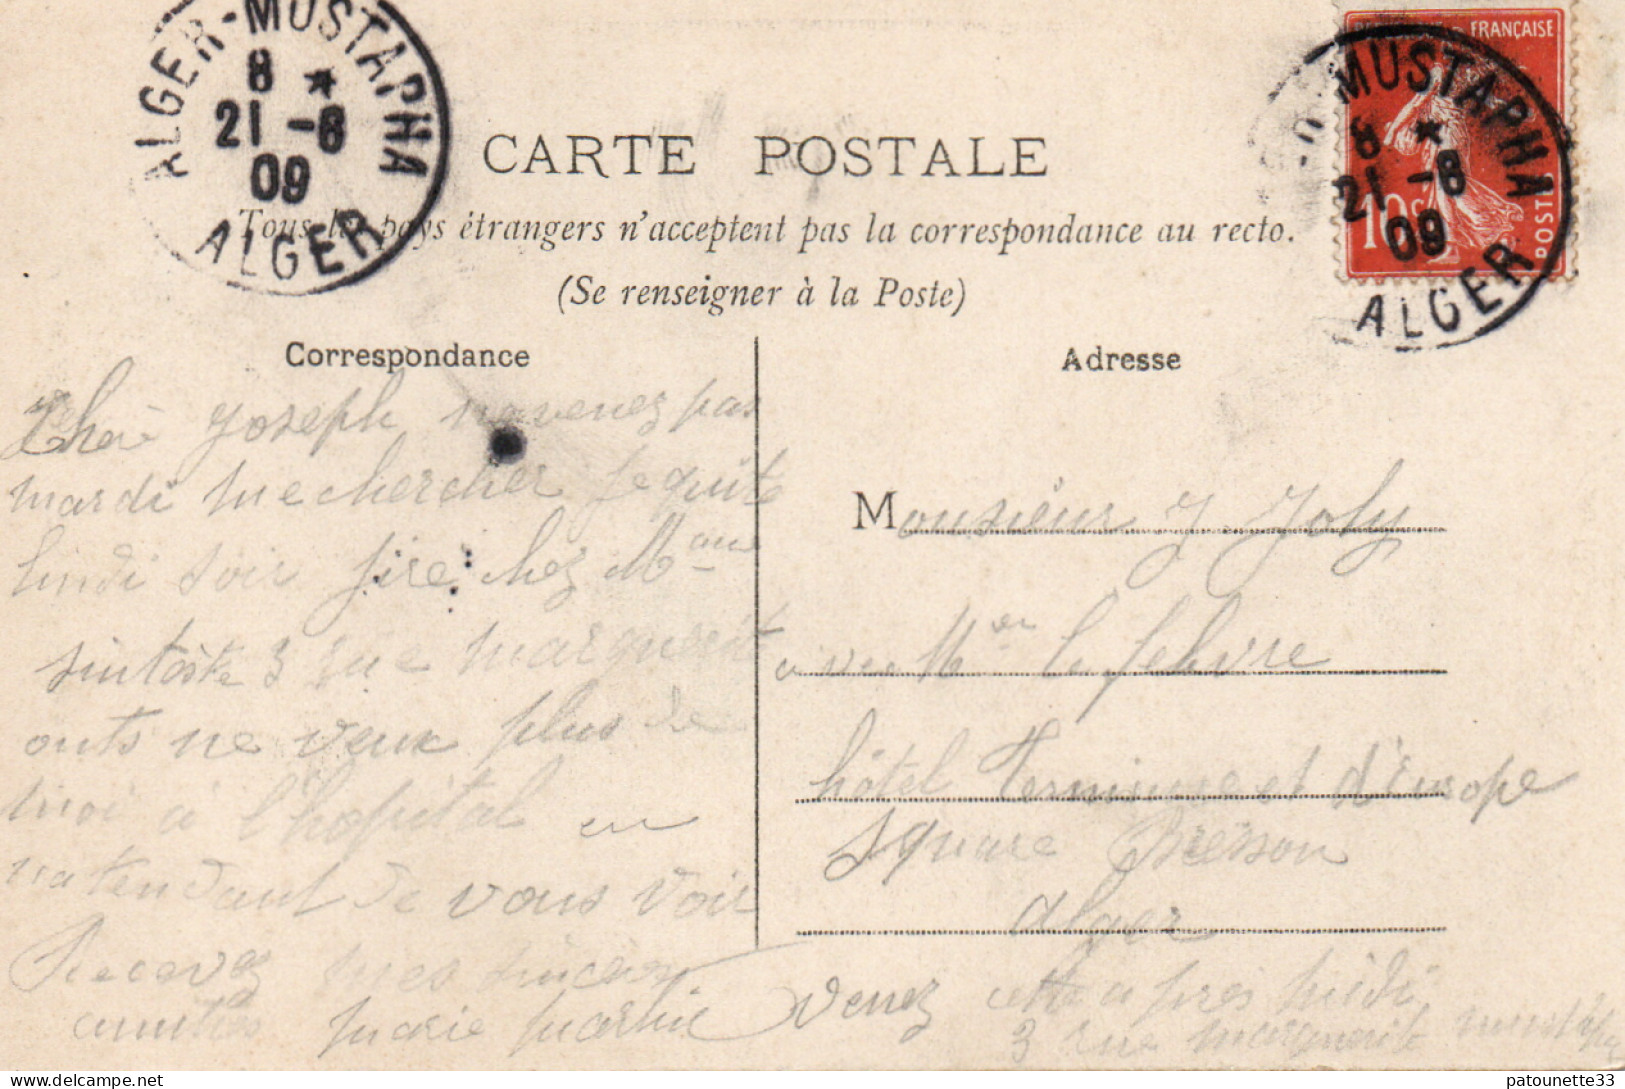 ALGER-MUSTAPHA
8 *
21 -8
09
ALGER
FRANÇAISE
MUSTAPHA
8 *
21 -8
09
10c
POSTES
ALGER
CARTE POSTALE
Tous les pays étrangers n'acceptent pas la correspondance au recto.
(Se renseigner à la Poste)
Correspondance
Adresse
Cher Joseph ne venez pas
mardi me chercher je quite
lundi soir chez Mame
3 rue marguerite
onts ne veux plus de
moi à l'hopital en
natendant de vous voir
Recevez mes sincères
amitiés Marie
Monsieur J. Joly
avec Mr le febvre
hôtel Terminuse et d'Europe
Square Bresson
Alger
Venez cette apres midi
3 rue marguerite mustapha
patounette33